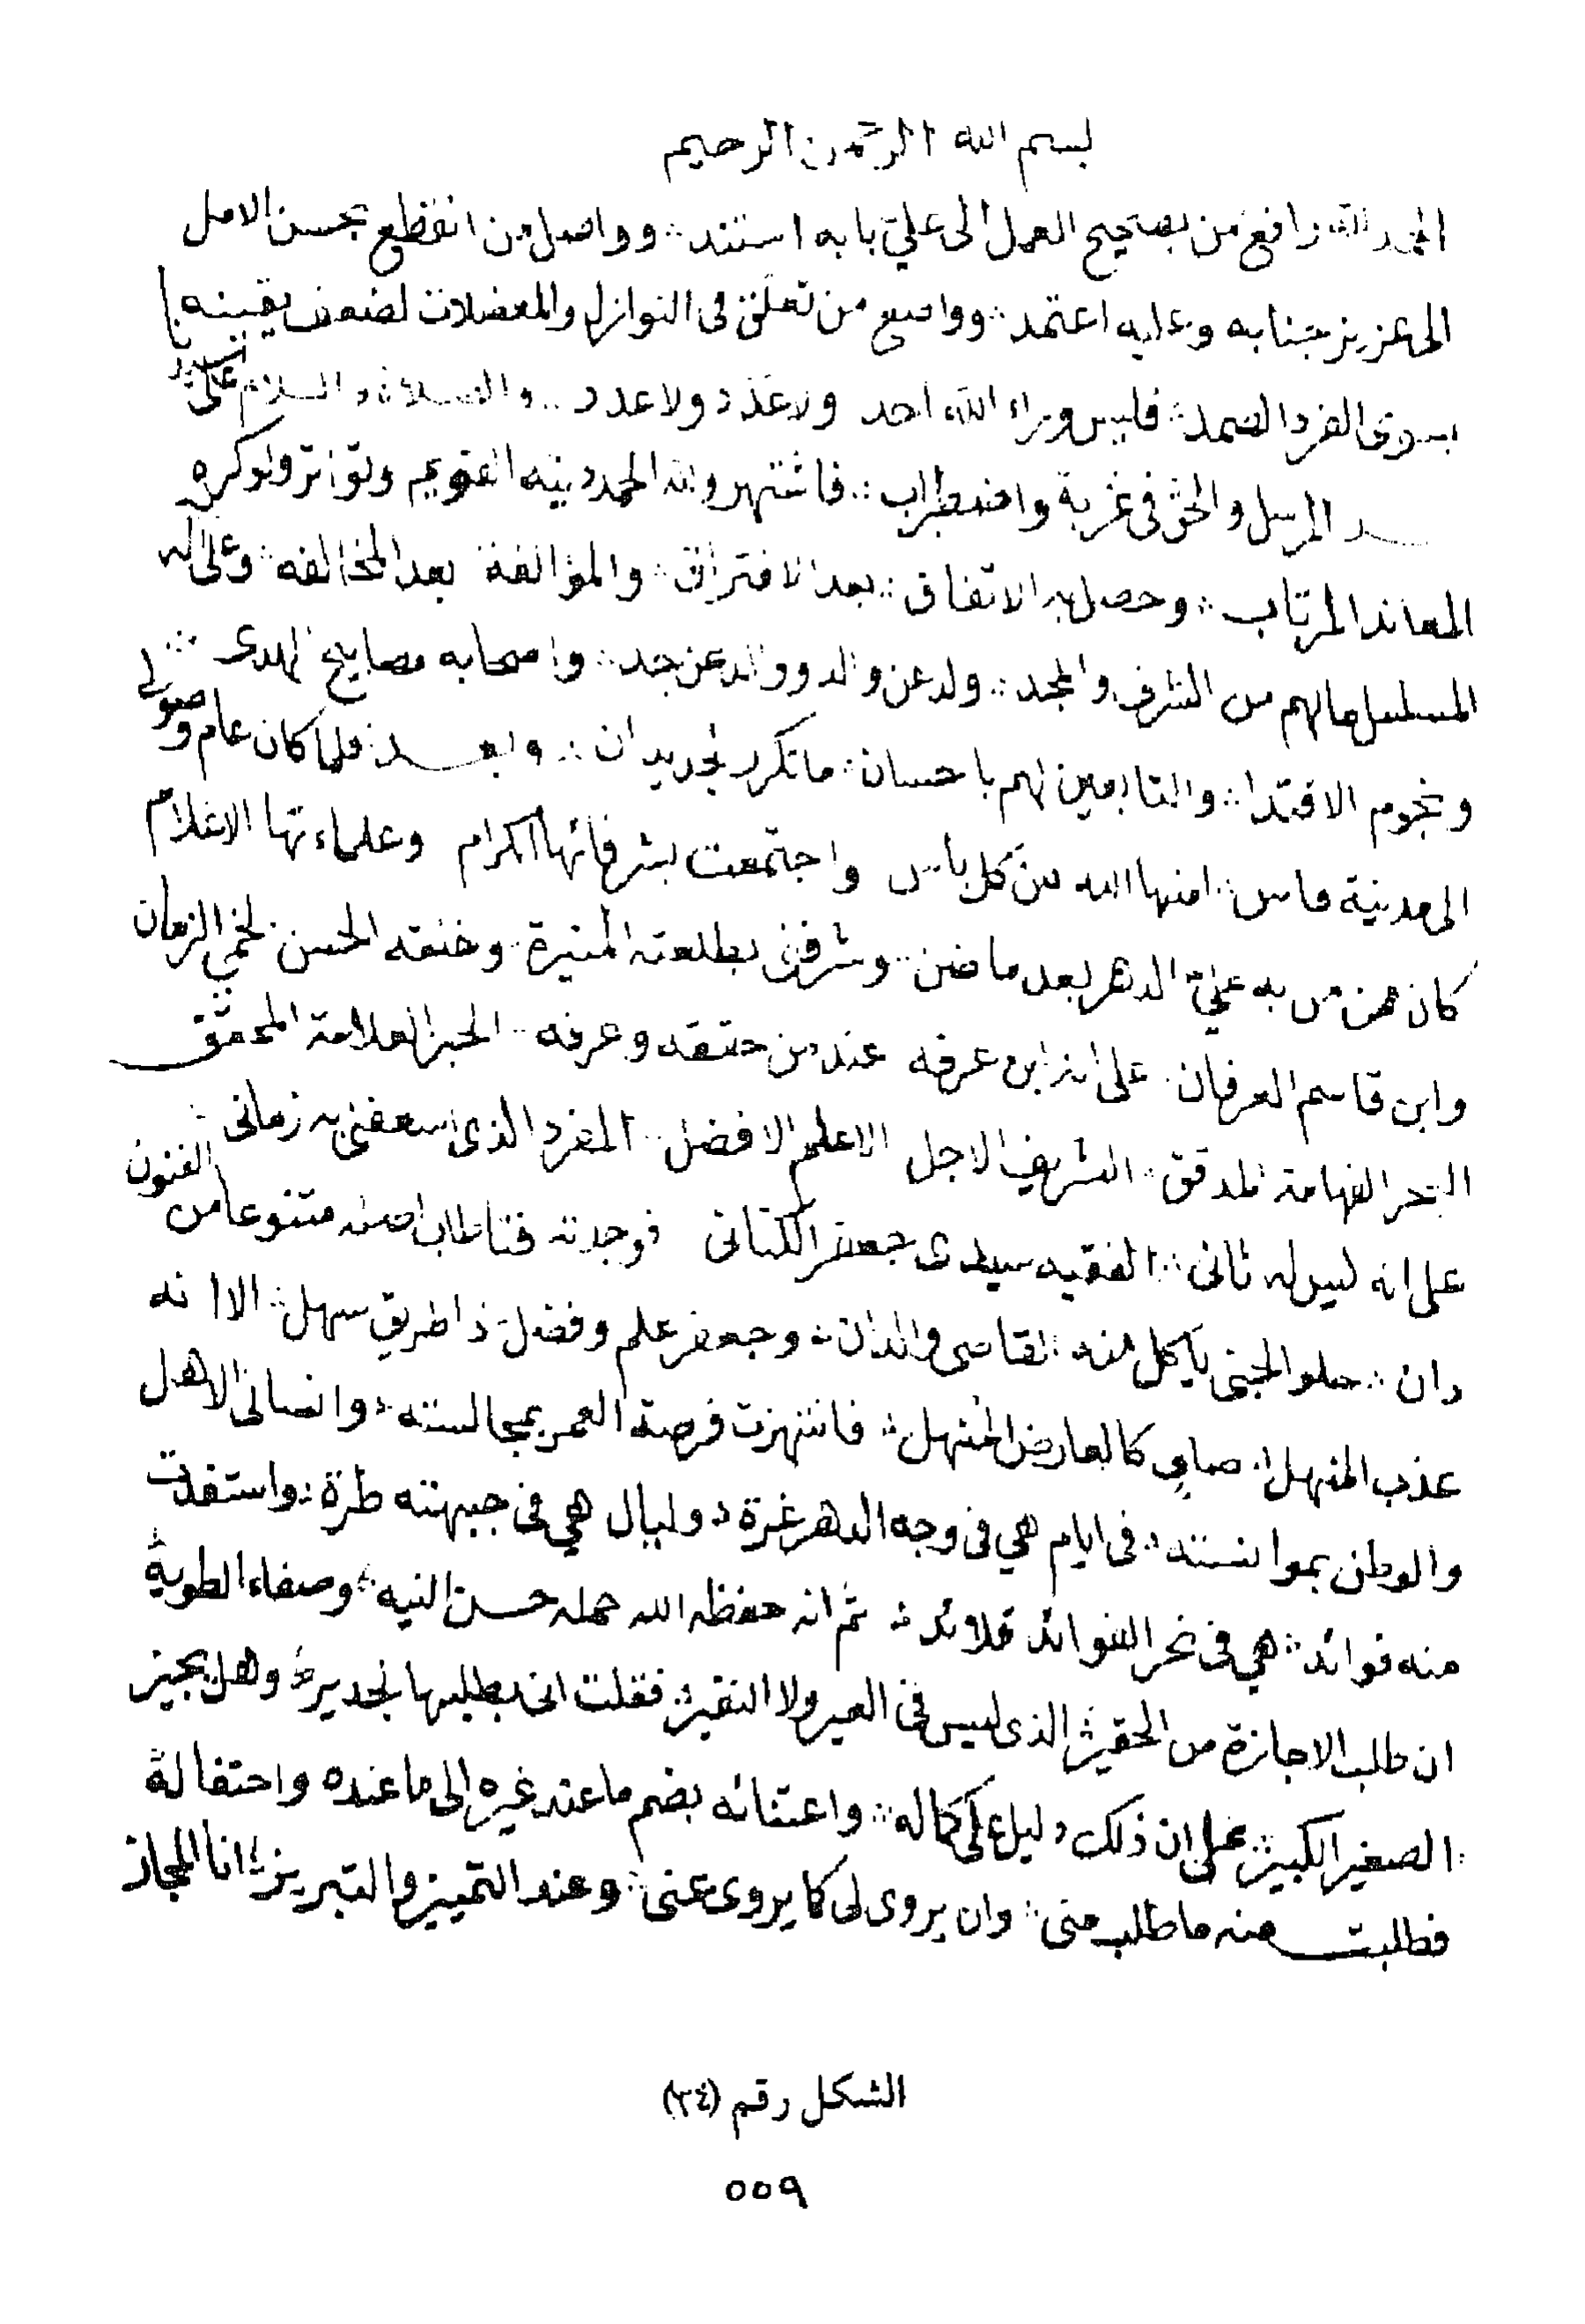 بسم الله الرحمن الرحيم
الحمد لله رافع من بصحيح العمل الى علي بابه استند ∴ وواصل من انقطع بحسن الامل
الى عزيز جنابه وعليه اعتمد ∴ وواضع من تعلق في النوازل والمعضلات لضعف يقينه
بسوى الفرد الصمد ∴ فليس وراء الله احد ولا عدد ولا عدد ∴ والصلاة والسلام على
المرسل والحق في غربة واضطراب ∴ فاشتهر ولله الحمد دينه القويم وتواتر ولو كره
المعاند المرتاب ∴ وحصل به الاتفاق ∴ بعد الافتراق ∴ والمؤالفة بعد المخالفه ∴ وعلى اله
المسلسل مالهم من الشرف والمجد ∴ ولد عن والد ووالد عن جد ∴ واصحابه مصابيح الهدى ∴
ونجوم الاقتدا ∴ والتابعين لهم باحسان ∴ ما تكرر الجديدان ∴ وبعد فلما كان عام وصولي
الى مدينة فاس ∴ امنها الله من كل باس واجتمعت بشرفائها الكرام وعلماءتها الاعلام
كان ممن من به علي الدهر بعد ما ضن ∴ وشرفني بطلعته المنيرة وخلقه الحسن لخمي الزمان
وابن قاسم العرفان ∴ على انه ابن عرفه عند من حققه وعرفه ∴ الحبر العلامة المحقق
البحر الفهامة المدقق ∴ الشريف الاجل الاعلم الافضل ∴ المفرد الذي اسعفني به زماني ∴
على انه ليس له ثاني ∴ الفقيه سيدى جعفر الكتاني فوجدته فتا طاب اصله متنوعا من الفنون
دان ∴ حلو الجنى يأكل منه القاصى والدان ∴ وجعفر علم وفضل ذا طريق سهل ∴ الا انه
عذب المنهل ∴ صاف كالعارض المنهل ∴ فانتهزت فرصة العمر بمجالسته ∴ وانساني الاهل
والوطن بموانسته ∴ في ايام هي في وجه الدهر غرة ∴ وليال هي في جبهته طرة ∴ واستفدت
منه فوائد ∴ هي في نحر الفوائد قلائد ∴ ثم انه حفظه الله حمله حسن النيه ∴ وصفاء الطوية
ان طلب الاجازة من الحقير ∴ الذي ليس في العير ولا النفير ∴ فقلت اني بطلبها لجدير ∴ وهل يجيز
الصغير الكبير ∴ على ان ذلك دليل على كماله ∴ واعتنائه بضم ما عند غيره الى ما عنده واحتفاله
فطلبت منه ما طلب مني ∴ وان يروى لى كما يروى عنى ∴ وعند التمييز والتبريز ∴ انا المجاز
الشكل رقم (٣٤)
٥٥٩